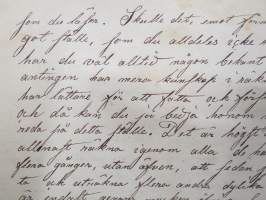 som du läser. Skulle det, emot förm
got ställe, som du alldeles icke
har du wäl alltid någon bekant
antingen har mera kunskap i räkn
har lättare för att fatta och förs
och då kan du ju bedja honom
reda på detta ställe. Det är högst
allenast räkna igenom alla de ha
flera gånger, utan äfven, att sedan
ta och uträkna flera andra dylika